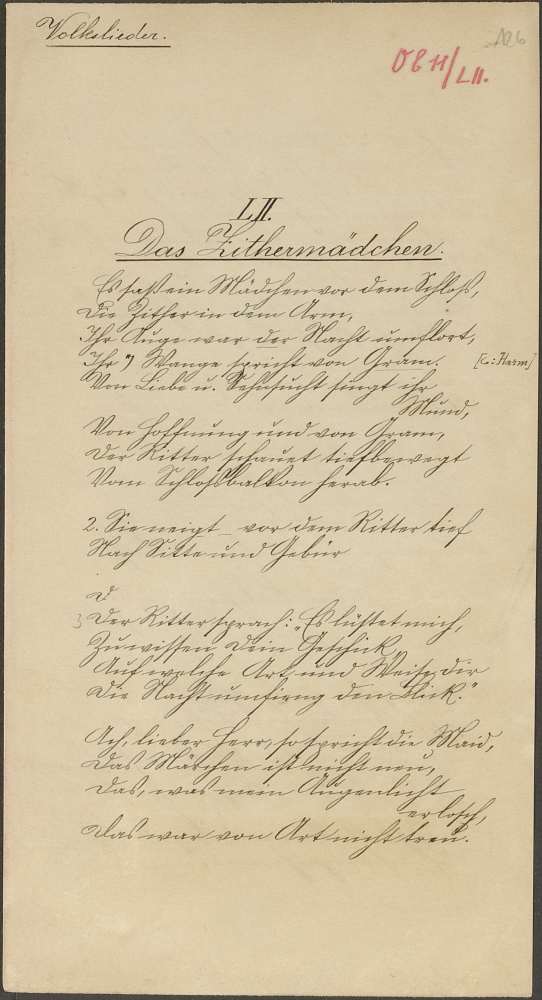 Volkslieder.
A26
OE 11/LII.
LII.
Das Zithermädchen.
Es saß ein Mädchen vor dem Schloß,
Die Zither in dem Arm,
Ihr Auge war der Nacht umflort,
Ihr *) Wange spricht von Gram. [C: Harm]
Von Liebe u. Sehnsucht singt ihr
Mund,
Von Hoffnung und von Gram,
Der Ritter schauet tiefbewegt
Vom Schloßbalkon herab.
2. Sie neigt vor dem Ritter tief
Nach Sitte und Gebür
3 Der Ritter sprach: „Es lüstet mich,
Zu wissen dein Geschick,
Auf welche Art und Weise dir
Die Nacht umfieng den Blick."
Ach, lieber Herr, so spricht die Maid,
Das Märchen ist nicht neu,
Das, was mein Augenlicht
erlosch,
Das war von Art nicht treu.